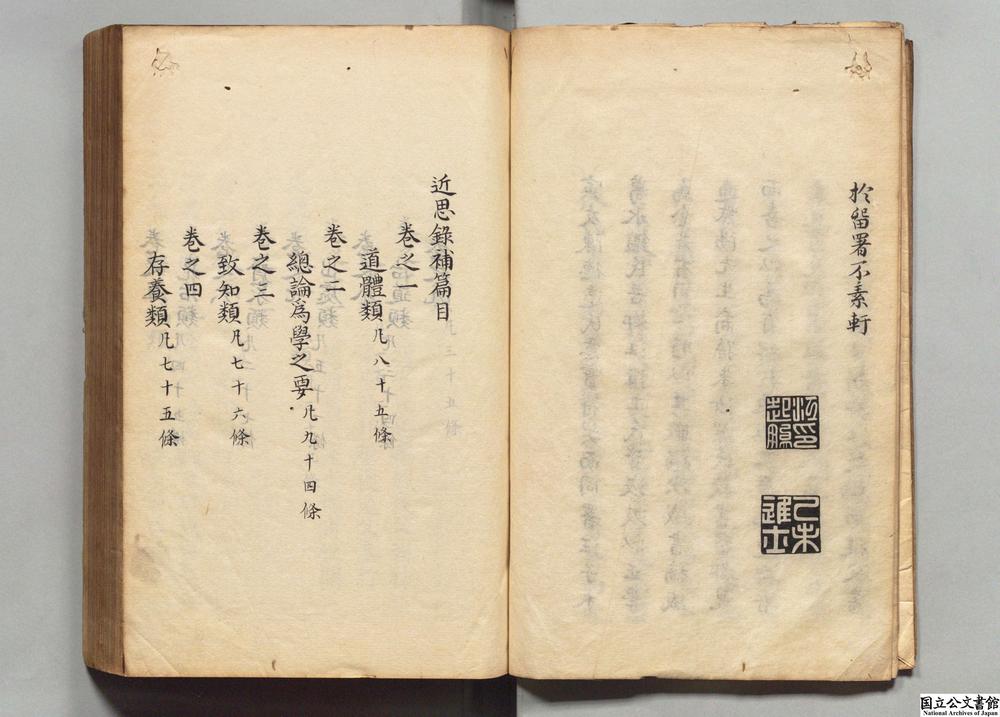 於留署不素軒
己未
進士
近思錄補篇目
卷之一
道體類凡八十五條
卷之二
總論爲學之要凡九十四條
卷之三
致知類凡七十六條
卷之四
存養類凡七十五條
国立公文書館
National Archives of Japan